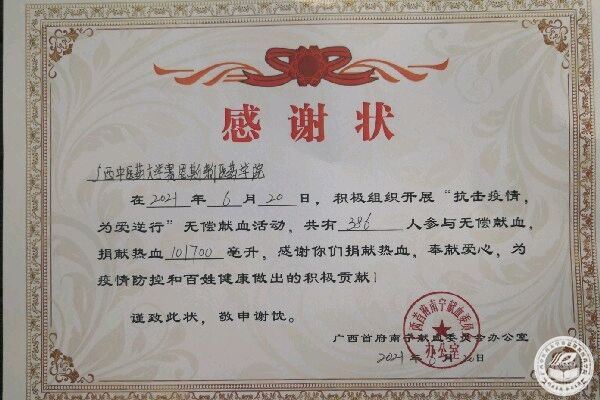 感谢状
广西中医药大学赛恩斯新医药学院
在 2021 年 6 月 20 日，积极组织开展“抗击疫情，
为爱逆行”无偿献血活动，共有 386 人参与无偿献血，
捐献热血 101700 毫升，感谢你们捐献热血，奉献爱心，为
疫情防控和百姓健康做出的积极贡献！
谨致此状，敬申谢忱。
广西首府南宁献血委员会办公室
2021 年 月 20 日
办公室